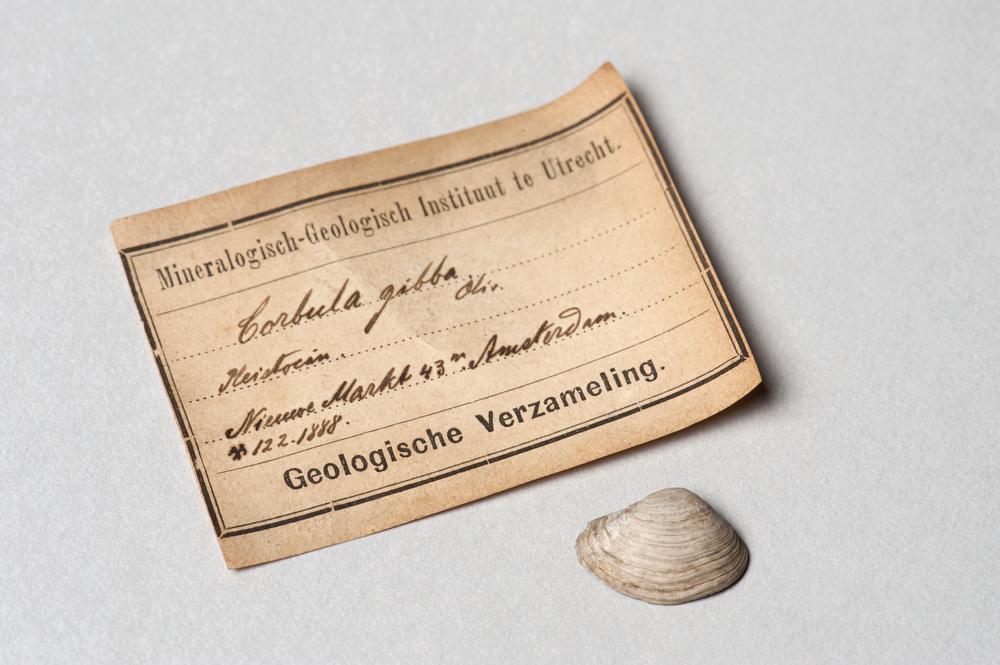 Mineralogisch-Geologisch Instituut te Utrecht.
Corbula gibba
Oliv.
Pleistocin.
Nieuwe Markt 43 m Amsterdam.
122-1888.
Geologische Verzameling.